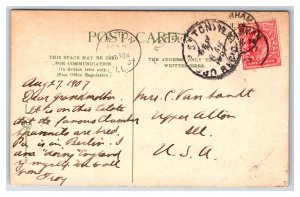 POST CARD
THIS SPACE MAY BE USED
FOR COMMUNICATION
(In British Isles only)
(Post Office Regulation).
THE ADDRESS
WRITTEN
Aug 27, 1907
Dear Grandmother.
It is on this Estate
that the famous
are bred.
is in Berlin. I
am "doing" England
by myself.
Troy
Mrs. C. Van Zandt
Upper Alton
Ill.
U.S.A.